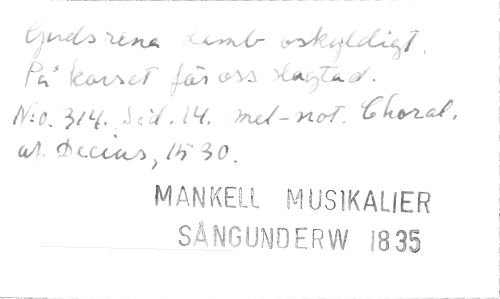 Guds rena Lamb oskyldigt.
På korset för oss slagtad.
N:o. 314. Sid. 14. mel-not. Choral.
af Decius, 1530.
MANKELL MUSIKALIER
SÅNGUNDERW 1835